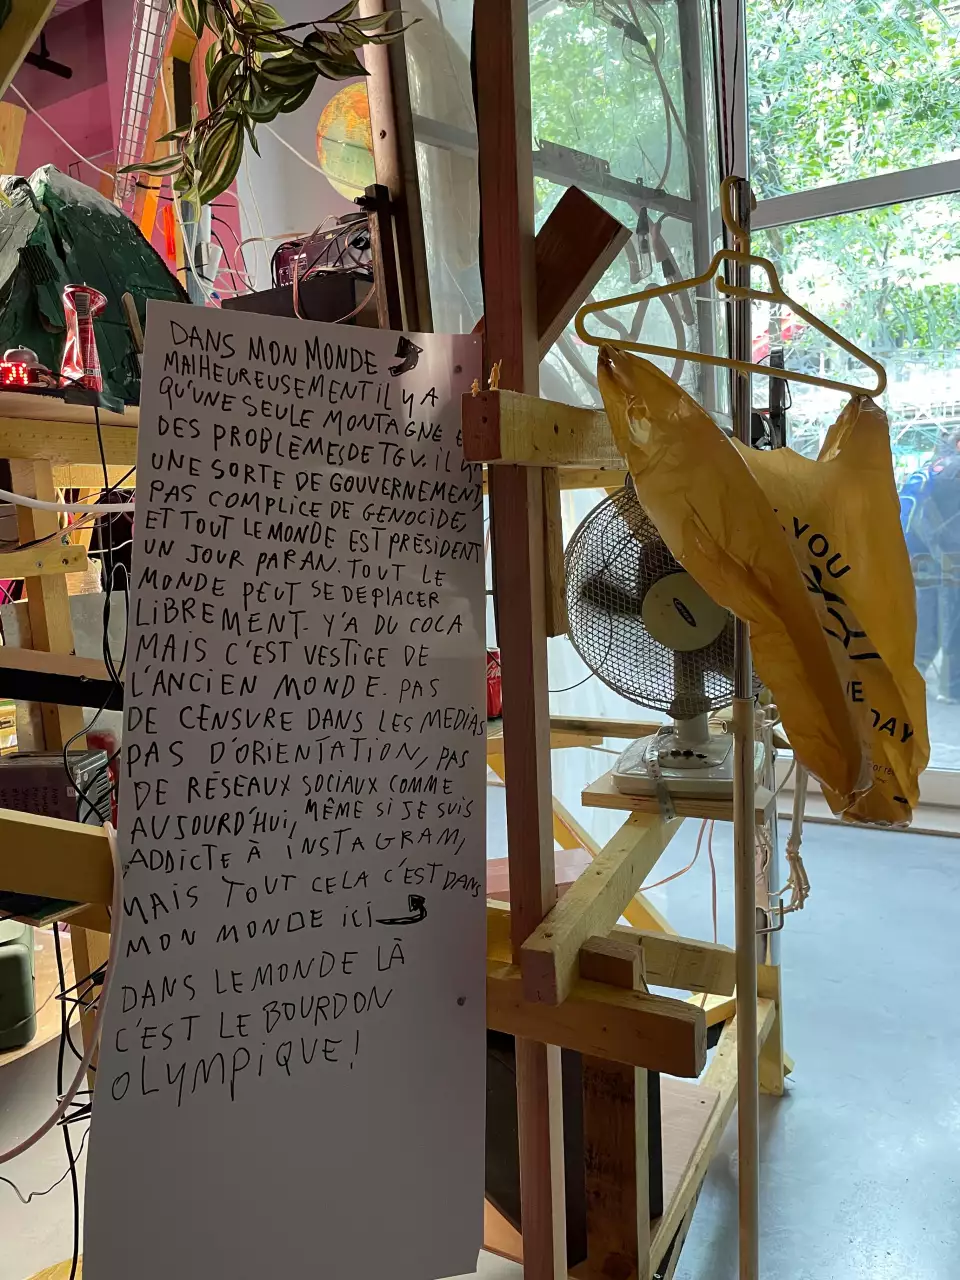 DANS MON MONDE
MALHEUREUSEMENT IL Y A
QU'UNE SEULE MONTAGNE
DES PROBLÈMES DE TGV. IL Y A
UNE SORTE DE GOUVERNEMENT,
PAS COMPLICE DE GENOCIDE,
ET TOUT LE MONDE EST PRÉSIDENT
UN JOUR PAR AN. TOUT LE
MONDE PEUT SE DEPLACER
LIBREMENT. Y'A DU COCA
MAIS C'EST VESTIGE DE
L'ANCIEN MONDE. PAS
DE CENSURE DANS LES MEDIAS
PAS D'ORIENTATION, PAS
DE RÉSEAUX SOCIAUX COMME
AUJOURD'HUI, MÊME SI JE SUIS
ADDICTE À INSTAGRAM,
MAIS TOUT CELA C'EST DANS
MON MONDE ICI
DANS LE MONDE LÀ
C'EST LE BOURDON
OLYMPIQUE!
YOU
DAY